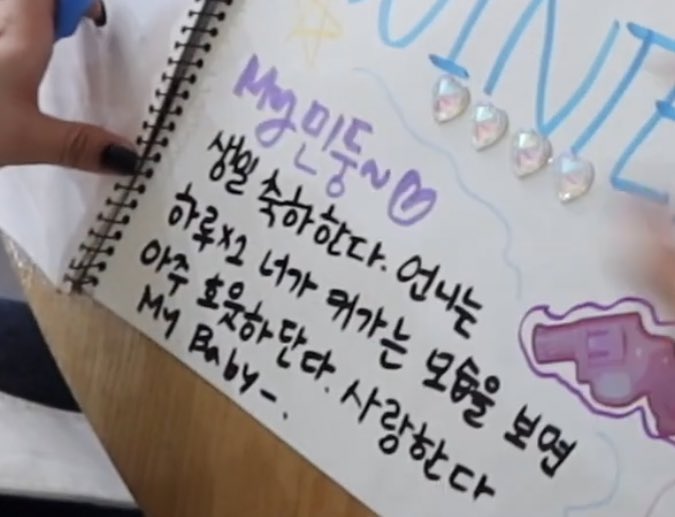 WINTE
My 민둥~♡
생일 축하한다. 언니는
하루×2 너가 커가는 모습을 보면
아주 흐뭇하단다. 사랑한다
My Baby-.